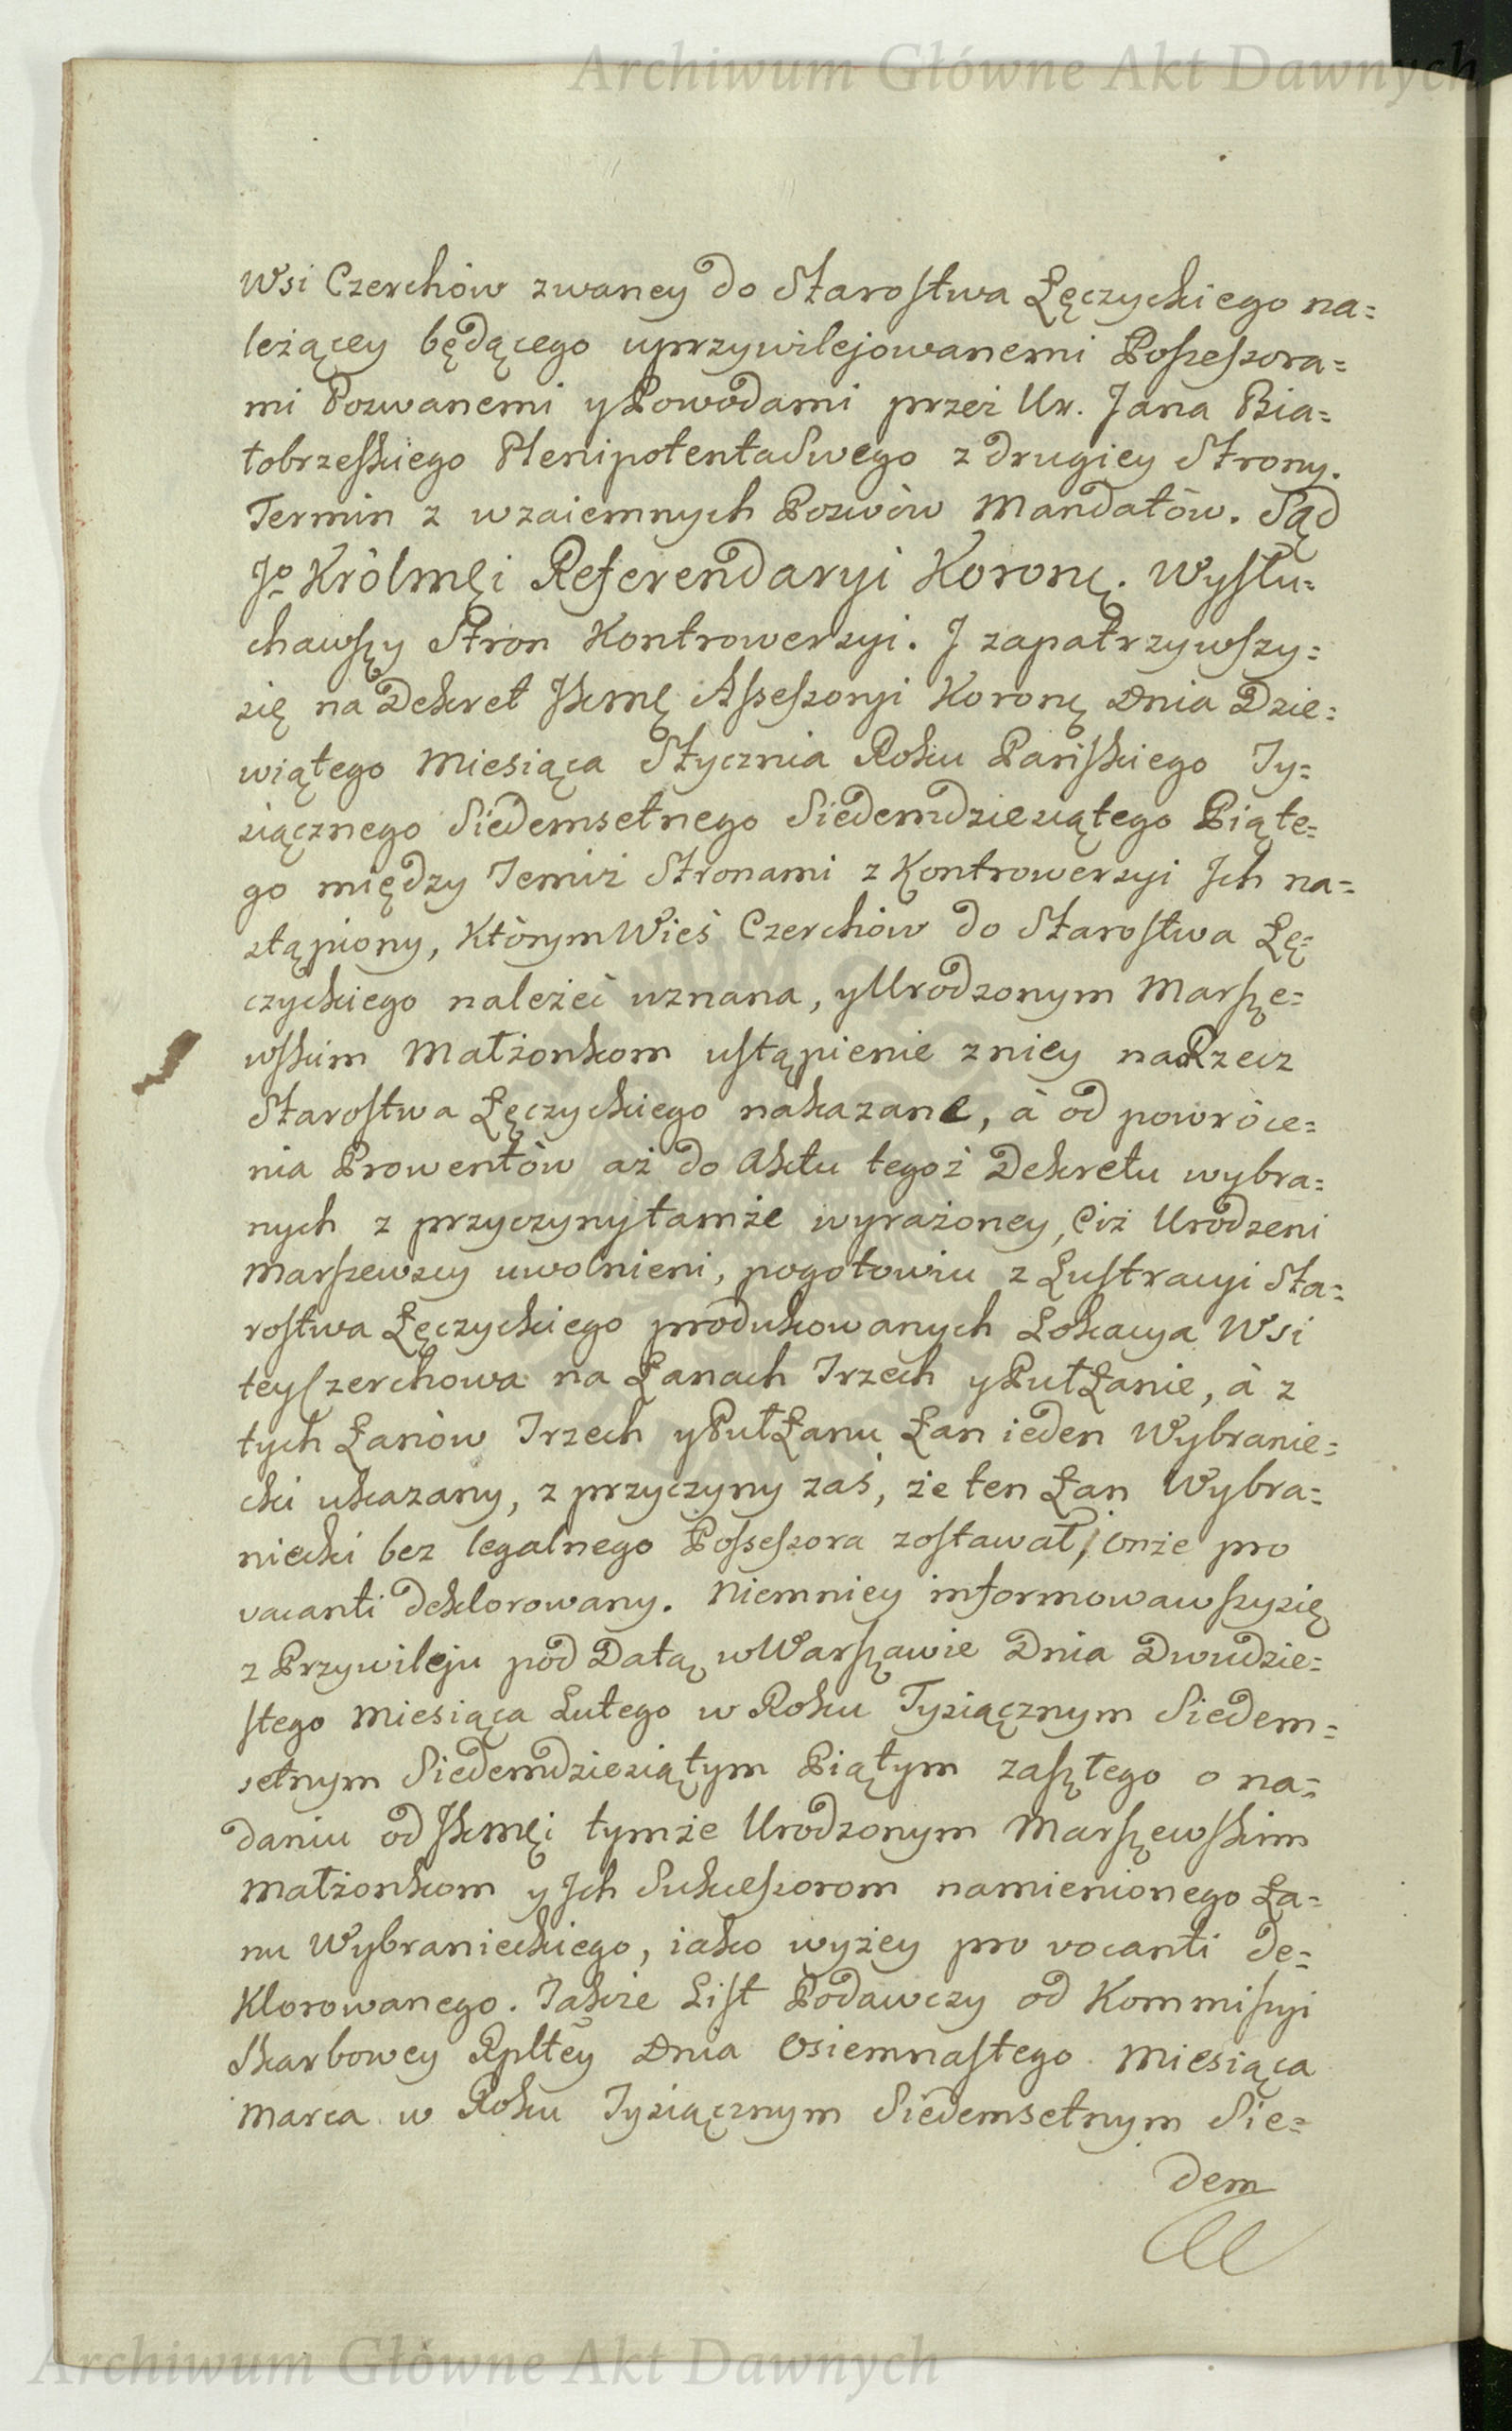 Archiwum Główne Akt Dawnych
Wsi Czerchów zwaney do Starostwa Łęczyckiego na=
leżącey będącego uprzywilejowanemi Possessora=
mi Pozwanemi y Powodami przez Ur. Jana Bia=
łobrzeskiego Plenipotenta Swego z drugiey Strony.
Termin z wzaiemnych Pozwów Mandatów. Sąd
Jo Królmęi Referendaryi Koronę. Wysłu=
chawszy Stron Kontrowersyi. J zapatrzywszy=
się na Dekret Jkmę Assessoryi Koronę Dnia Dzie=
wiątego Miesiąca Stycznia Roku Pańskiego Ty=
siącznego Siedemsetnego Siedemdziesiątego Piąte=
go między Temiż Stronami z Kontrowersyi Jch na=
stąpiony, Którym Wieś Czerchów do Starostwa Łę=
czyckiego należeć uznana, y Urodzonym Marsze=
wskim Małżonkom ustąpienie z niey na Rzecz
Starostwa Łęczyckiego nakazane, à od powróce=
nia Prowentów aż do Aktu tegoż Dekretu wybra=
nych z przyczyny tamże wyrażoney, Ciż Urodzeni
Marszewscy uwolnieni, pogotowiu z Lustracyi Sta=
rostwa Łęczyckiego produkowanych Lokacya Wsi
tey Czerchowa na Łanach Trzech y Puł Łanie, à z
tych Łanów Trzech y Puł Łanu Łan ieden Wybranie=
cki ukazany, z przyczyny zaś, że ten Łan Wybra=
niecki bez legalnego Possessora zostawał, onże pro
vacanti deklorowany. Niemniey informowawszysię
z Przywileju pod Datą w Warszawie Dnia Dwudzie=
stego Miesiąca Lutego w Roku Tysiącznym Siedem=
setnym Siedemdziesiątym Piątym zaszłego o na=
daniu od Jkmęi tymże Urodzonym Marszewskim
Małżonkom y Jch Sukcessorom namienionego Ła=
nu Wybranieckiego, iako wyżey pro vocanti de=
Klorowanego. Także List Podawczy od Kommissyi
Skarbowey Rpltey Dnia Osiemnastego Miesiąca
Marca w Roku Tysiącznym Siedemsetnym Sie=
dem
Archiwum Główne Akt Dawnych